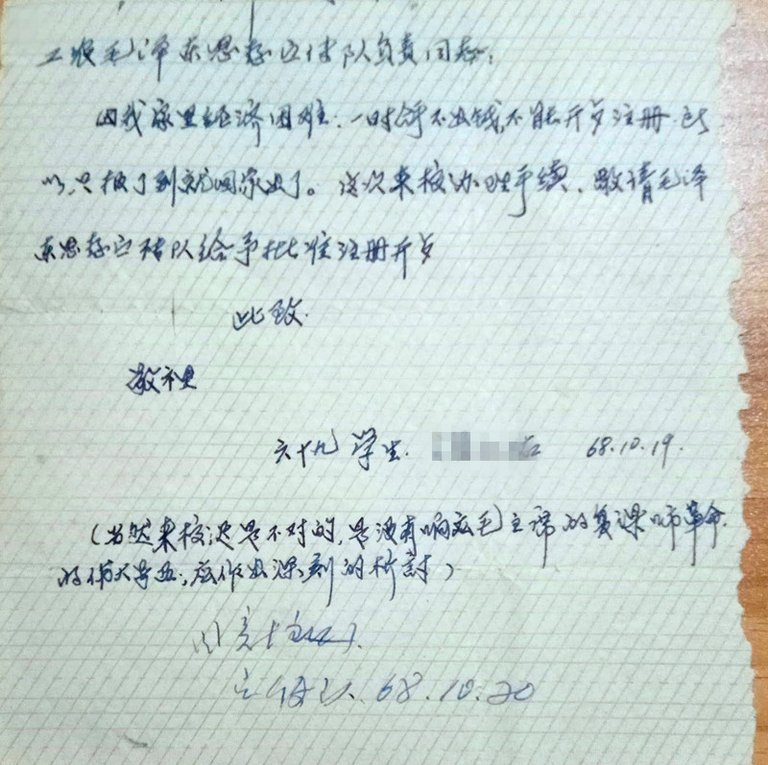 工农毛泽东思想宣传队负责同志:
因我家里经济困难.一时拿不出钱,不能开夕注册.所
以只报了到就回家去了。这次来校办理手续,敬请毛泽
东思想宣传队给予批准注册开夕
此致.
敬礼
六十九 学生. 68.10.19.
(当然来校迟是不对的,是没有响应毛主席的复课闹革命.
的伟大号召,应作出深刻的检討)
同意
宣传队.68.10.20